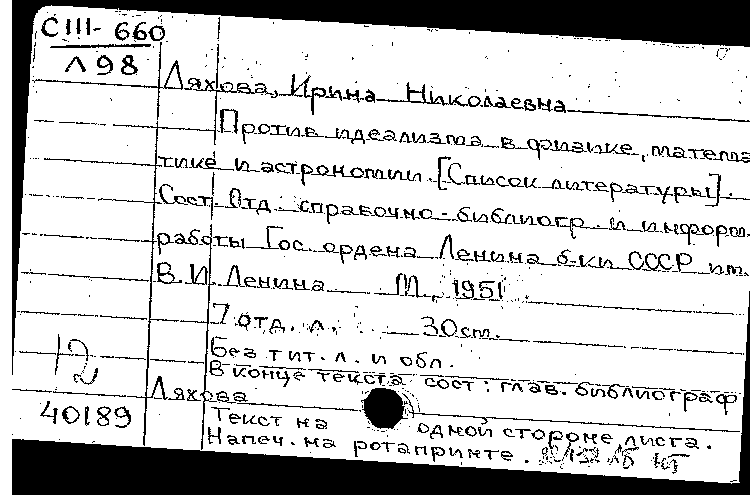 СIII- 660
Л98
Ляхова, Ирина Николаевна
Против идеализма в физике, матема
тике и астрономии. [Список литературы].
Сост. Отд. справочно-библиогр. и информ.
работы Гос. ордена Ленина б-ки СССР им.
В.И. Ленина М., 1951.
7 отд. л. 30см.
Без тит. л. и обл.
В конце текста сост: глав. библиограф
Ляхова
12
40189
Текст на одной стороне листа.
Напеч. на ротапринте.